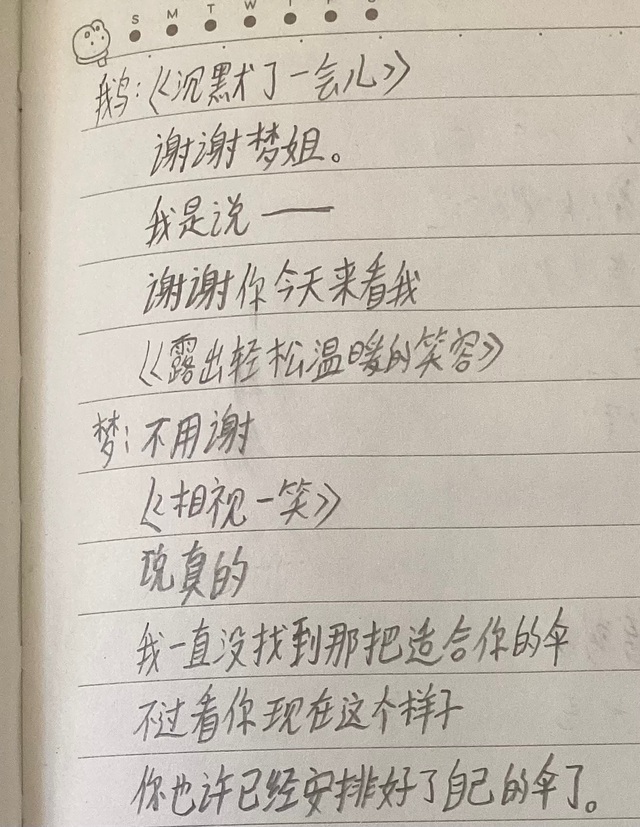 S M T W T F S
鹅：《沉默了一会儿》
谢谢梦姐。
我是说——
谢谢你今天来看我
《露出轻松温暖的笑容》
梦：不用谢
《相视一笑》
说真的
我一直没找到那把适合你的伞
不过看你现在这个样子
你也许已经安排好了自己的伞了。